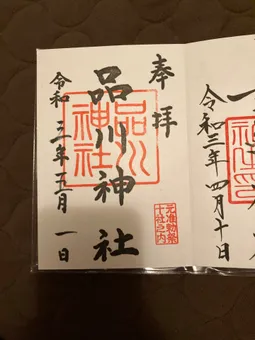 令和三年四月十日
奉拝
品川神社
品川神社
元准勅祭
十社之内
令和三年五月一日